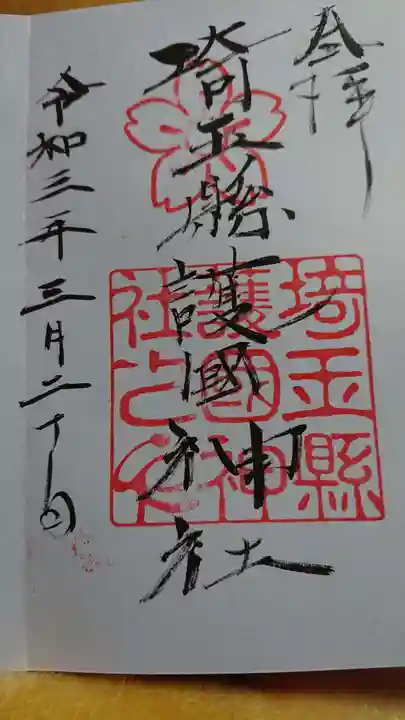 奉拝
埼玉縣護國神社
令和三年三月二十一日
埼玉縣
護國神
社之印